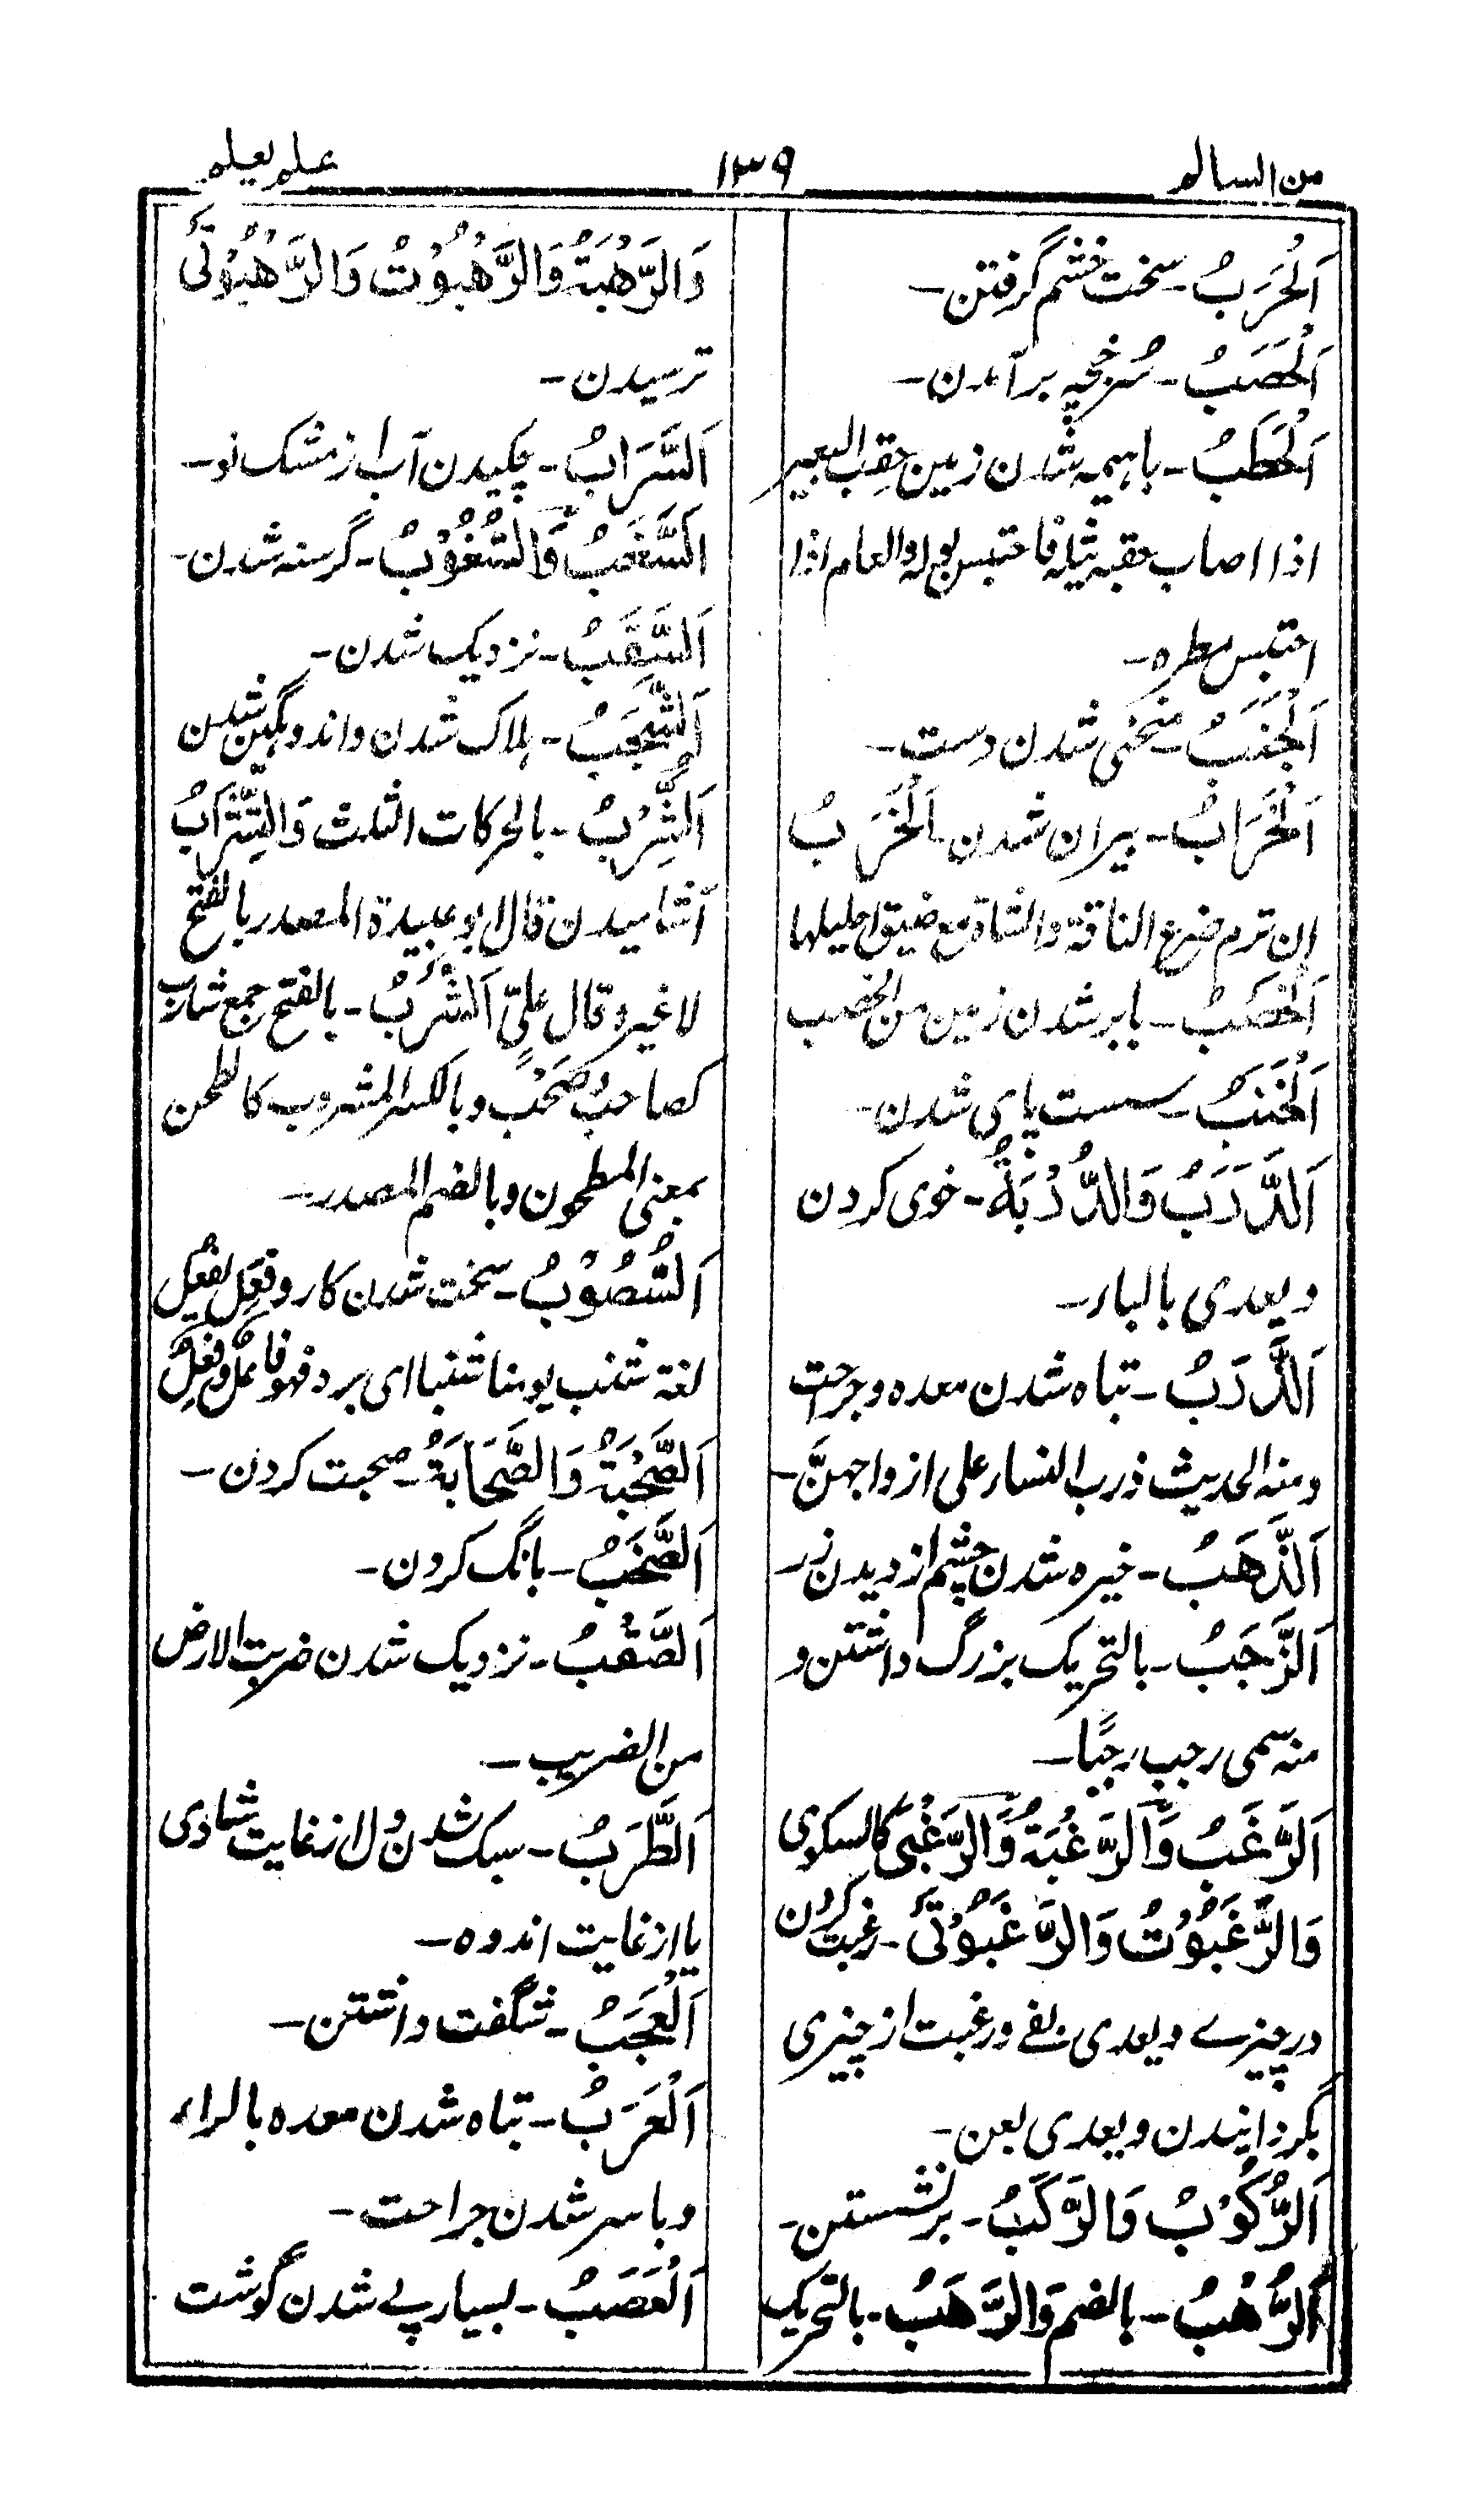 من السالم
۱۳۹
علم یعلم
اَلْحَرَبُ - سخت خشم گرفتن -
اَلْحَصَبُ - سُرخجه برآمدن -
اَلْحَطَبُ - باهیمه شدن زمین حقِب البعیر
اذا اصاب حقبه ثیله فاحتبس بوله والعام اذا
احتبس مطره -
اَلْجَنَبُ - منحنی شدن دست -
اَلْخَرَابُ - بیران شدن - اَلْخَرَبُ
ان ترم ضرع الناقة والشاة مع ضیق احلیلها
اَلْخَصَبُ - بابر شدن زمین من الخصب
اَلْخَنَبُ - سست پای شدن -
اَلدَّرَبُ وَالدُّرْبَةُ - خوی کردن
ویعدی بالباء -
اَلذَّرَبُ - تباه شدن معده وجراحت
ومنه الحدیث ذرب النساء علی ازواجهنَّ -
اَلذَّهَبُ - خیره شدن چشم از دیدن زر -
اَلرَّجَبُ - بالتحریک بزرگ داشتن و
منه سمی رجب رجبًا -
اَلرَّغَبُ وَالرَّغْبَةُ وَالرَّغْبٰی کالسکری
وَالرَّغَبُوْتُ وَالرَّغَبُوْتٰی - رغبت کردن
در چیزے ویعدی بفی ورغبت از چیزی
بگردانیدن ویعدی بعن -
اَلرُّکُوْبُ وَالرَّکَبُ - برنشستن -
اَلرُّهْبُ - بالضم وَالرَّهَبُ - بالتحریک
وَالرَّهْبَةُ وَالرَّهْبُوْتُ وَالرَّهْبُوْتٰی
ترسیدن -
اَلسَّرَابُ - چکیدن آب از مشک نو -
اَلسَّغَبُ وَالسُّغُوْبُ - گرسنه شدن -
اَلسَّقَبُ - نزدیک شدن -
اَلشَّجَبُ - هلاک شدن واندوهگین شدن
اَلشِّرْبُ - بالحرکات الثلث وَالتِّشْرَابُ
آشامیدن قال ابو عبیدة المصدر بالفتح
لاغیر وقال علیّ اَلشَّرْبُ - بالفتح جمع شارب
کصاحب وصَحْبٍ وبالکسر المشروب کالطحن
بمعنی المطحون وبالضم المصدر -
اَلشُّصُوْبُ - سخت شدن کار وفعِل یفعِل
لغة شنب یومنا شنبا ای برد فهو فاعلٌ وفعِلٌ
اَلصُّحْبَةُ وَالصَّحَابَةُ - صحبت کردن -
اَلصَّخَبُ - بانگ کردن -
اَلصَّقَبُ - نزدیک شدن ضربت الارض
من الضریب -
اَلطَّرَبُ - سبک شدن دل از غایت شادی
یا از غایت اندوه -
اَلْعَجَبُ - شگفت داشتن -
اَلْعَرَبُ - تباه شدن معده بالراء
وباسر شدن جراحت -
اَلْعَصَبُ - بسیار پے شدن گوشت